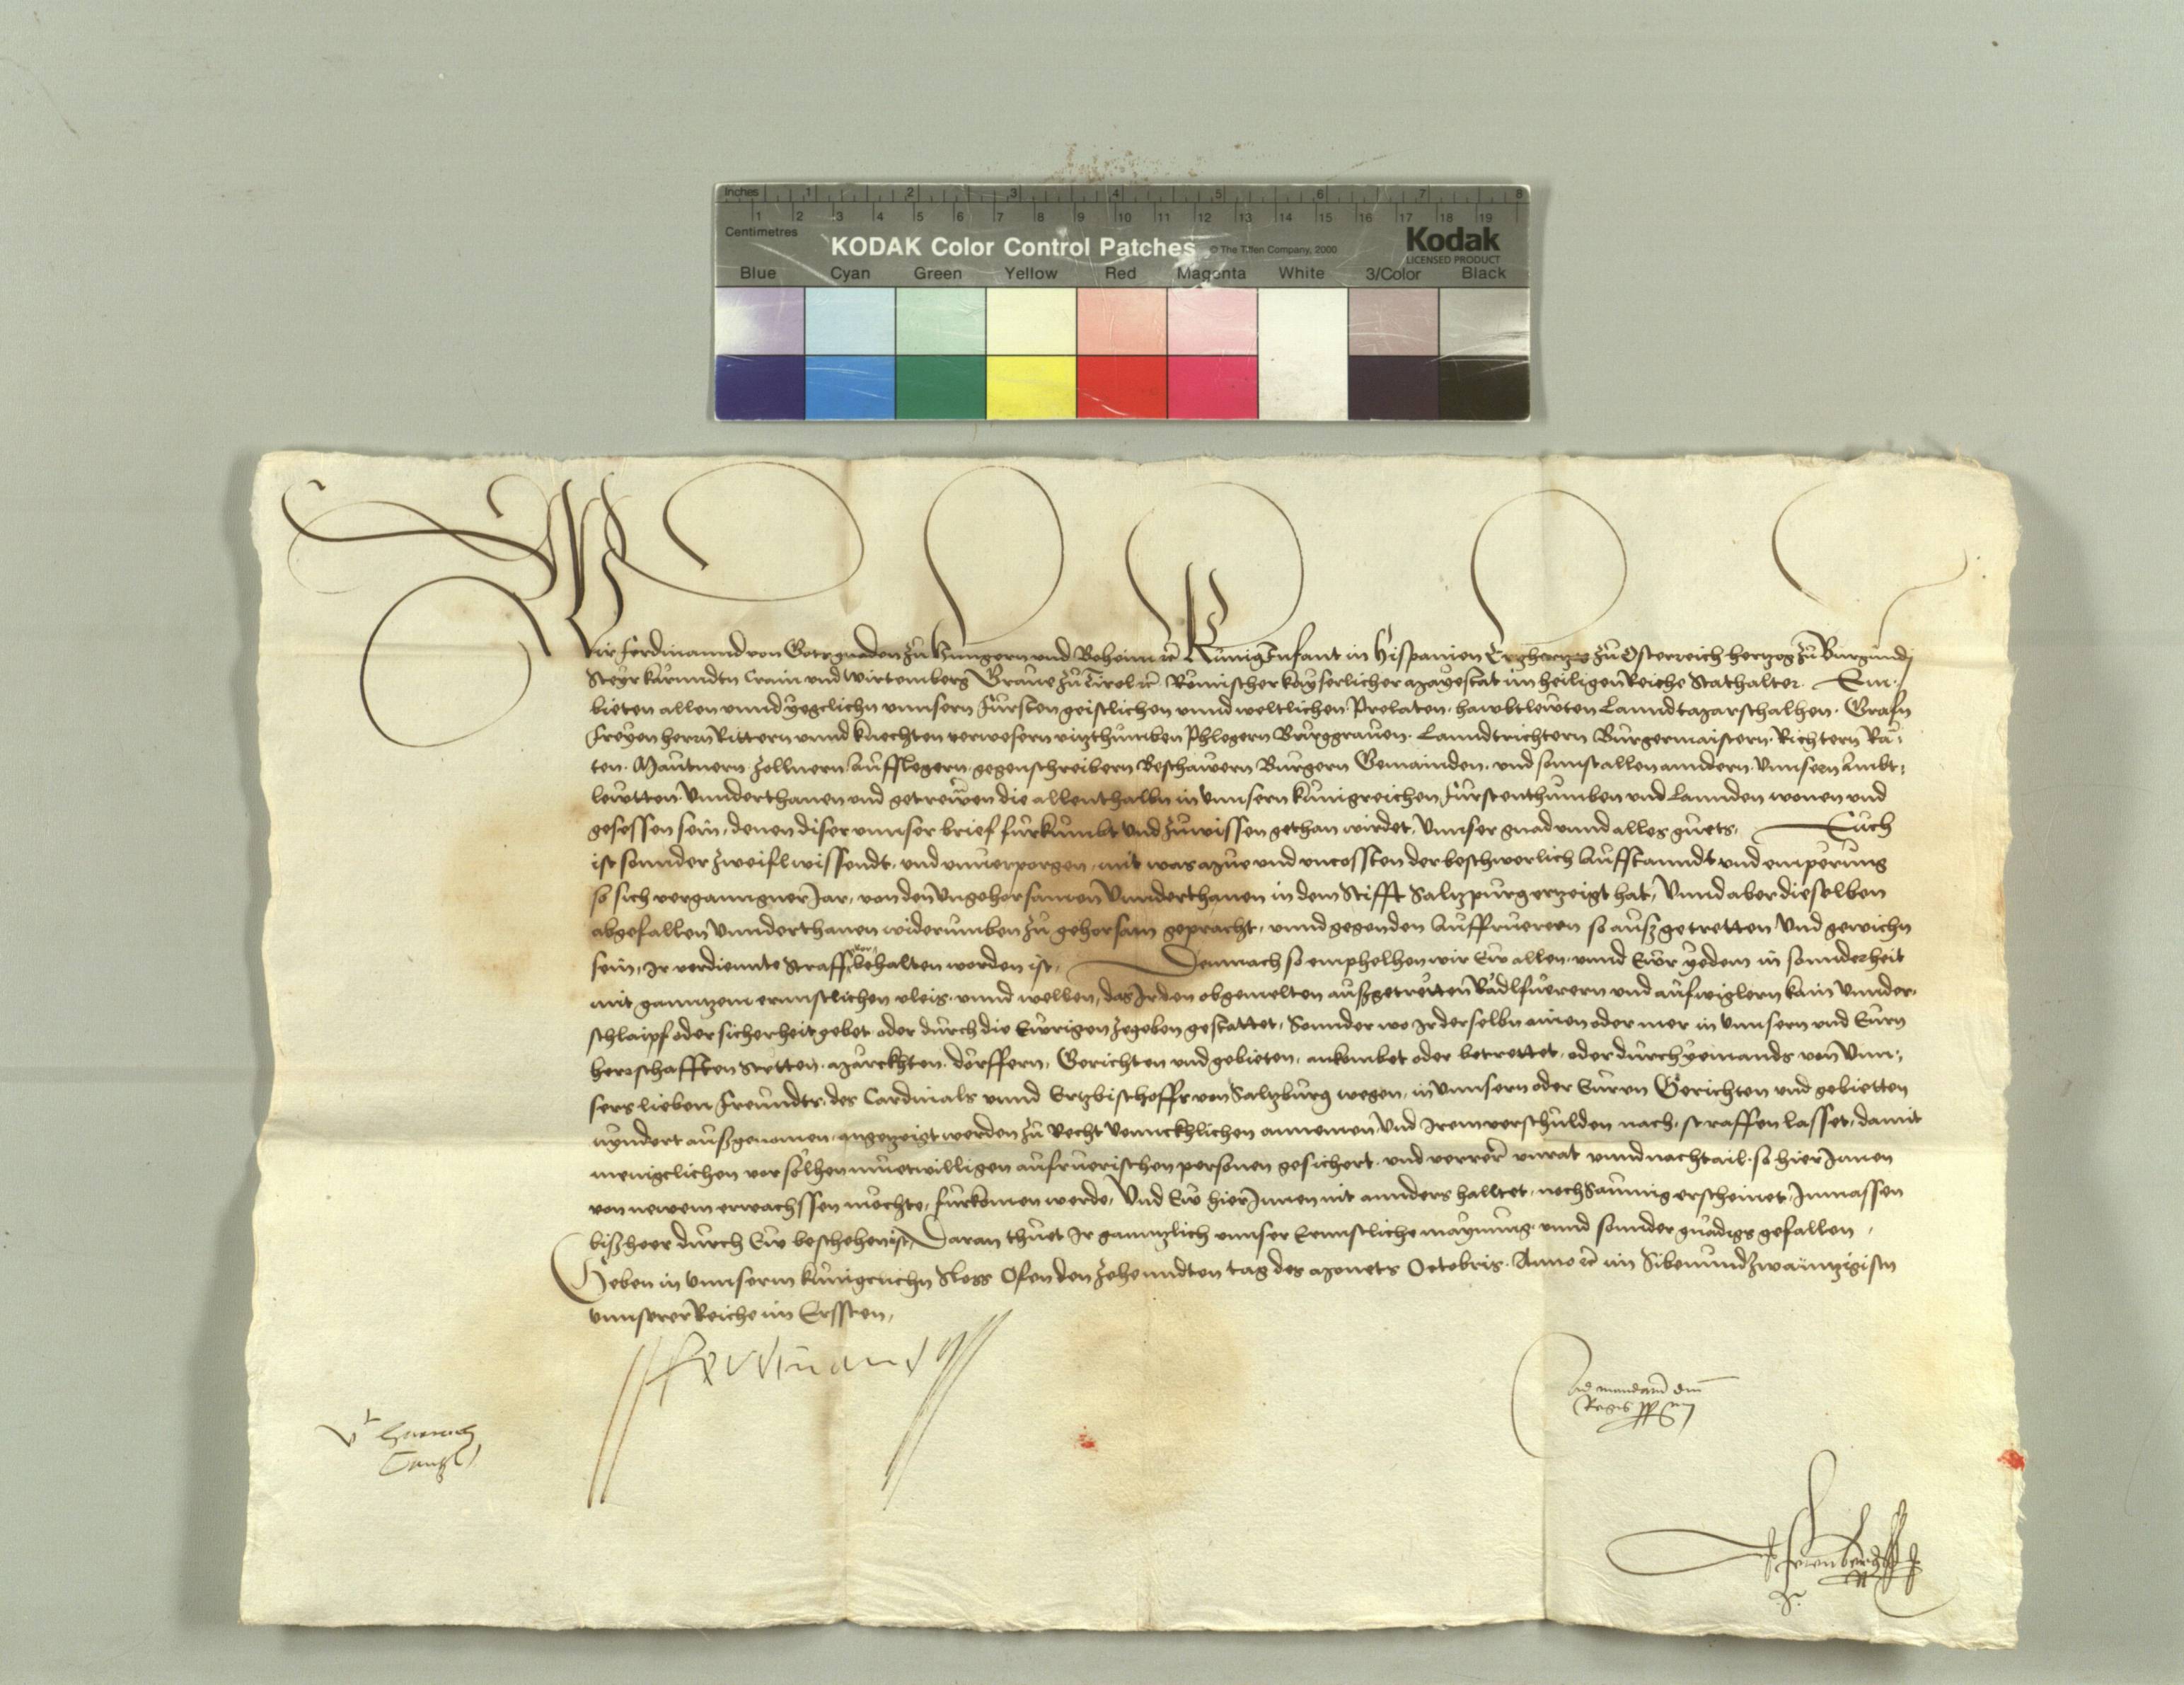 Inches 1 2 3 4 5 6 7 8
1 2 3 4 5 6 7 8 9 10 11 12 13 14 15 16 17 18 19
Centimetres
KODAK Color Control Patches © The Tiffen Company, 2000 Kodak
LICENSED PRODUCT
Blue Cyan Green Yellow Red Magenta White 3/Color Black
Wir Ferdinannd von Gots gnaden zu Hungern vnd Beheim ꝛc Kunig Infant in Hispanien Ertzhertzog zu Osterreich hertzog zu Burgundj
Steyr Kärnndtn Crain vnd Wirtemberg Graue zu Tirol ꝛc Römischer kayserlicher Mayestat im heiligen Reiche Stathalter. Em-
bieten allen vnnd yegclichn vnnsern Fürsten geistlichen vnnd weltlichen Prelaten hawbtlewten Lanndtmarschalhen Grafn
Freyen herrn Rittern vnnd knechten verwesern vitzthumben Phlegern Burggrauen Lanndtrichtern Burgermaistern Richtern Rä-
ten Mautnern Zollnern Aufflegern gegenschreibern Beschawern Burgern Gemainden vnd sunst allen anndern Vnnsern Ambt-
lewtten Vnnderthanen vnd getrewen die allenthalbn in Vnnsern kunigreichen Fürstenthumben vnd Lannden wonen vnd
gesessen sein, denen diser vnnser brief fürkumbt vnd zuwissen gethan wirdet, Vnnser gnad vnnd alles guets, Euch
ist sonnder zweifl wissendt, vnd vnuerporgen, mit was mue vnd vncossten der beschwerlich Aufstanndt vnd emperung
so sich verganngner Jar, von den Vngehorsamen Vnnderthanen in dem Stifft Saltzpurg erzeigt hat, Vnnd aber dieselben
abgefallen Vnnderthanen widerumben zu gehorsam gepracht, vnnd gegen den Auffruerern so ausgetretten Vnd gewichn
sein, Ir verdiennte Straff vorbehalten worden ist, Demnach so emphelhen wir Ew allen vnnd Ewr yedem in sonnderheit
mit ganntzem ernnstlichen vleis vnnd wellen, das Ir den obgemelten außgetretten Rädlfuerern vnd aufwiglern kain Vnnder-
schlaipf oder sicherheit gebet oder durch die Ewrigen zegeben gestattet, Sonnder wo Ir derselbn ainen oder mer in Vnnsern vnd Eurn
herrschafften Stetten Märckhten dörffern, Gerichten vnd gebieten, ankombet oder betrettet, oder durch yemands von Vnn-
sers lieben Freundts des Cardinals vnnd Ertzbischoffs von Saltzburg wegen, in Vnnsern oder Eurrn Gerichten vnd gebietten
nyndert außgenomen, angetzeigt werden zu Recht Venncklichen annemen Vnd Irem verschulden nach, straffen lasset, damit
menigclichen vor solhen muetwilligen aufruerischen personen gesichert vnd verrer vnrat vnnd nachtail, so hier Innen
von newem erwachssen möchte, fürkomen werde, Vnd Ew hier Innen nit annders halltet, noch Saumig erscheinet, Inmassen
bißheer durch Ew beschehen ist, Daran thuet Ir ganntzlich vnnser Ernnstliche maynung vnnd sonnder gnädigs gefallen,
Geben in Vnnserm kunigclichn Sloss Ofen den Zehenndten tag des Monets Octobris Anno ꝛc im Sibenundzwäintzigisten
Vnnserer Reiche im Erssten,
Ferdinand
Ad mandatum dni
Regis ppm
Harrach
Cantzl